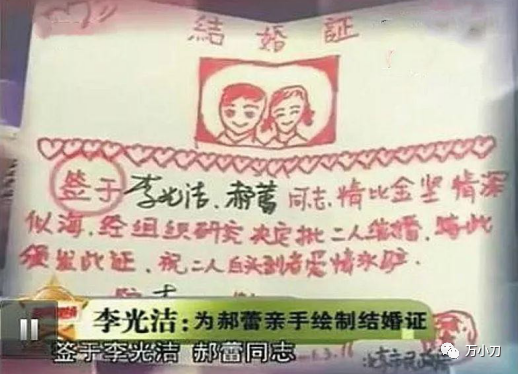 結婚証
签于李光洁、郝蕾同志情比金坚情深
似海，经组织研究决定批二人结婚，特此
颁发此证，祝二人白头到老爱情永驻.
李光洁：为郝蕾亲手绘制结婚证
签于李光洁 郝蕾同志
万小刀